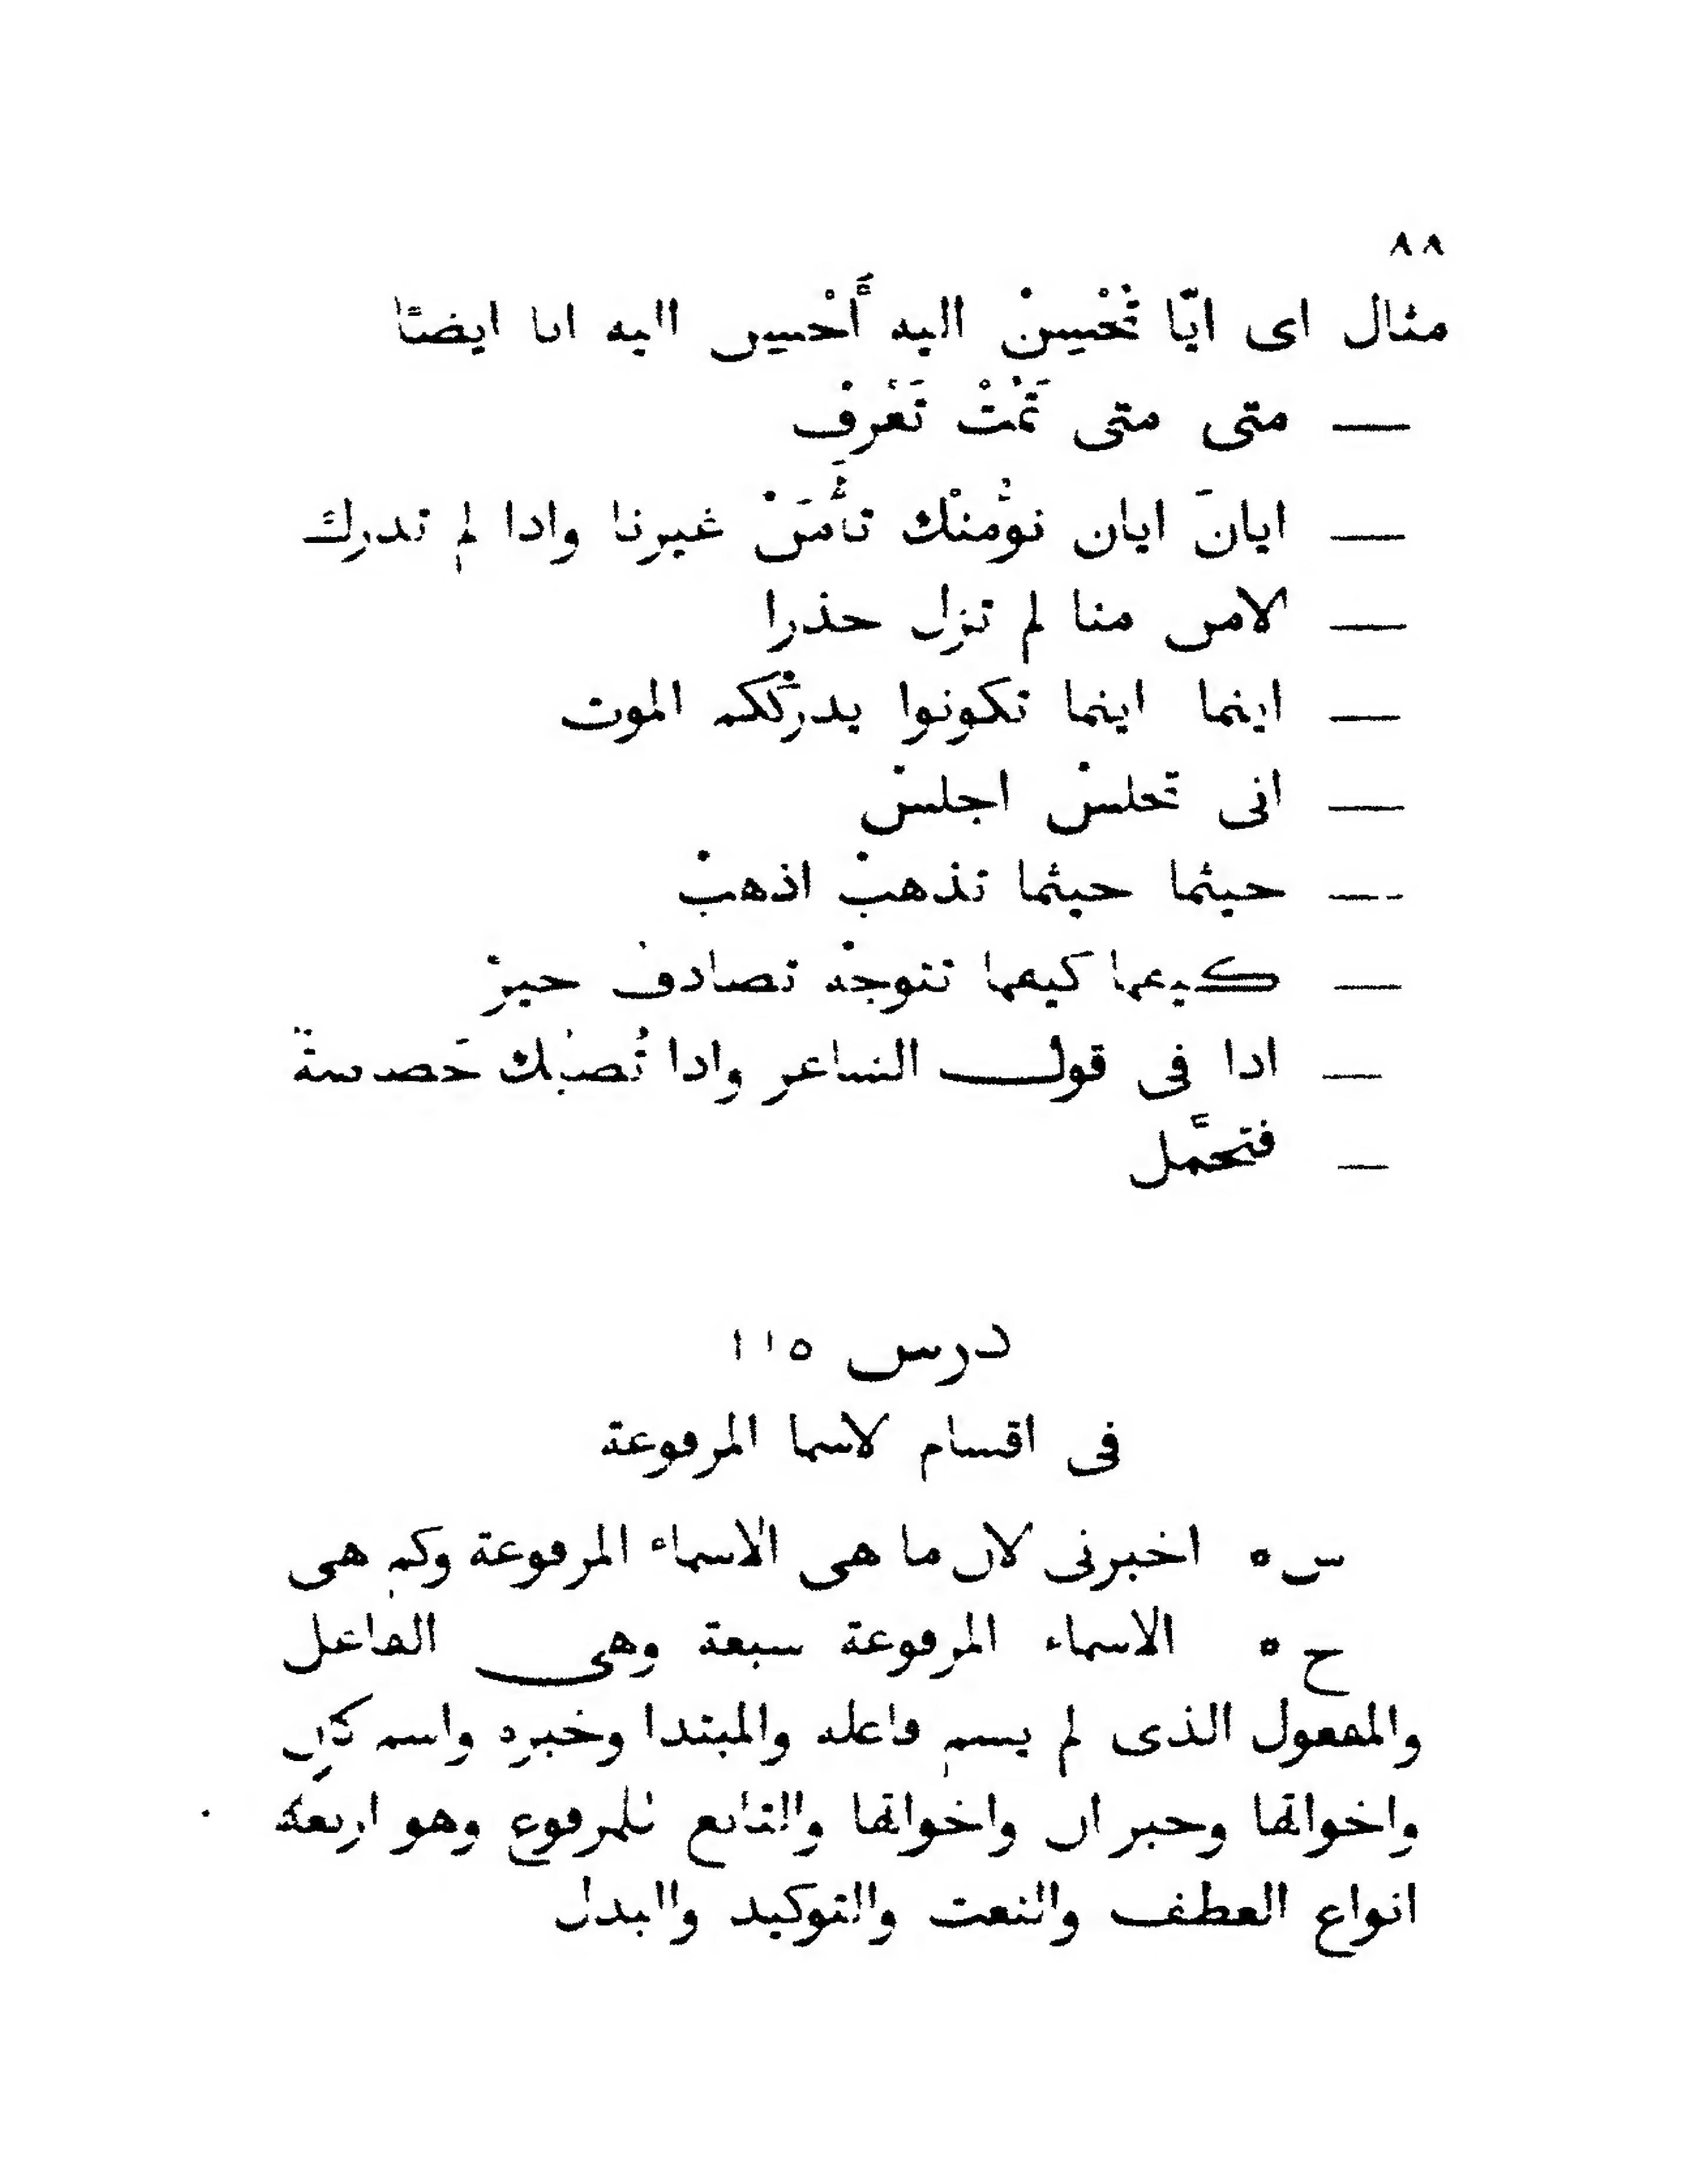 ٨٨
مثال اى ايّا تُحْسِنْ اليه أُحْسِن اليه انا ايضًا
— متى متى تَمُتْ تَعْرِفْ
— ايانَ ايان نوْمنْك تأْمَنْ غيرنا واذا لم تدرك
— لامن منا لم تزل حذرا
— اينما اينما تكونوا يدرككم الموت
— انى تجلسْ اجلسْ
— حيثما حيثما تذهبْ اذهبْ
— كيفما كيفما تتوجهْ تصادفْ خيرْ
— اذا فى قول الشاعر واذا تُصبْك خَصاصةٌ
— فتحمَّل
درس ١١٥
فى اقسام لاسما المرفوعة
س ٥ اخبرنى لان ما هى الاسماء المرفوعة وكم هى
ج ٥ الاسماء المرفوعة سبعة وهى الفاعل
والمفعول الذى لم يسم فاعله والمبتدا وخبره واسم كان
واخواتها وخبر ان واخواتها والتابع للمرفوع وهو اربعة
انواع العطف والنعت والتوكيد والبدل